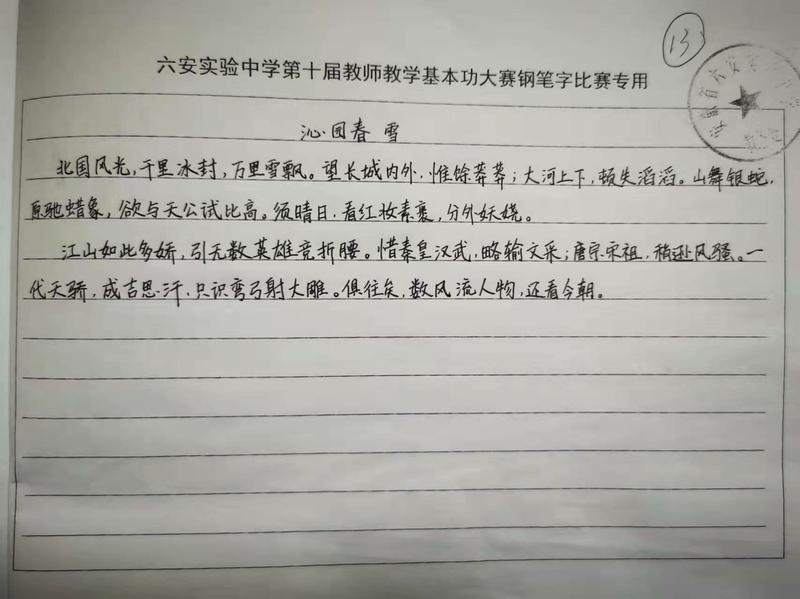 13
六安实验中学第十届教师教学基本功大赛钢笔字比赛专用
沁园春 雪
北国风光，千里冰封，万里雪飘。望长城内外，惟馀莽莽；大河上下，顿失滔滔。山舞银蛇，
原驰蜡象，欲与天公试比高。须晴日，看红妆素裹，分外妖娆。
江山如此多娇，引无数英雄竞折腰。惜秦皇汉武，略输文采；唐宗宋祖，稍逊风骚。一
代天骄，成吉思汗，只识弯弓射大雕。俱往矣，数风流人物，还看今朝。